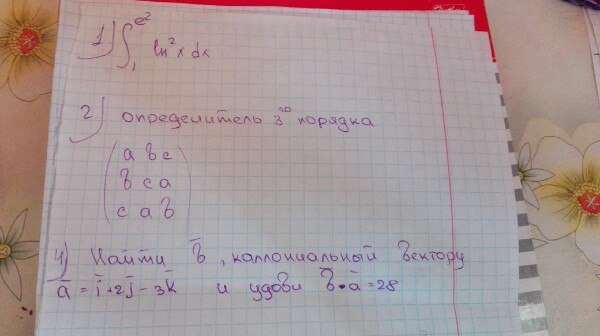 1) ∫₁^e² ln²x dx
2) определитель 3го порядка
(a b c
b c a
c a b)
4) Найти b̄, каллониальный вектору
ā = ī + 2j̄ - 3k̄ и удовл b̄·ā = 28